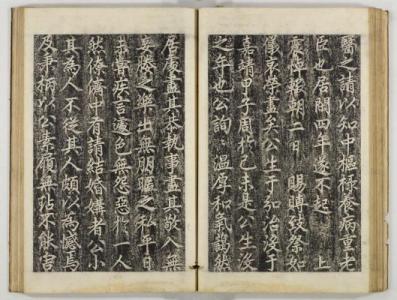 醫之請以知中樞祿養病重老
臣也居閒四年遂不起 上
震悼輟朝二日 賜賻致祭如
儀哀榮盡矣公生于弘治沒于
嘉靖甲子周於己未其公生沒
之年也公詢〻溫厚和氣藹然
居處盡其恭執事盡其敬入無
妾媵之樂出無朋暱之私平日
未嘗疾言遽色無怨惡於一人
然僚儕中有請結婚媾者公小
其為人不從其人頗以為憾焉
及秉柄以公素履無玷不能害